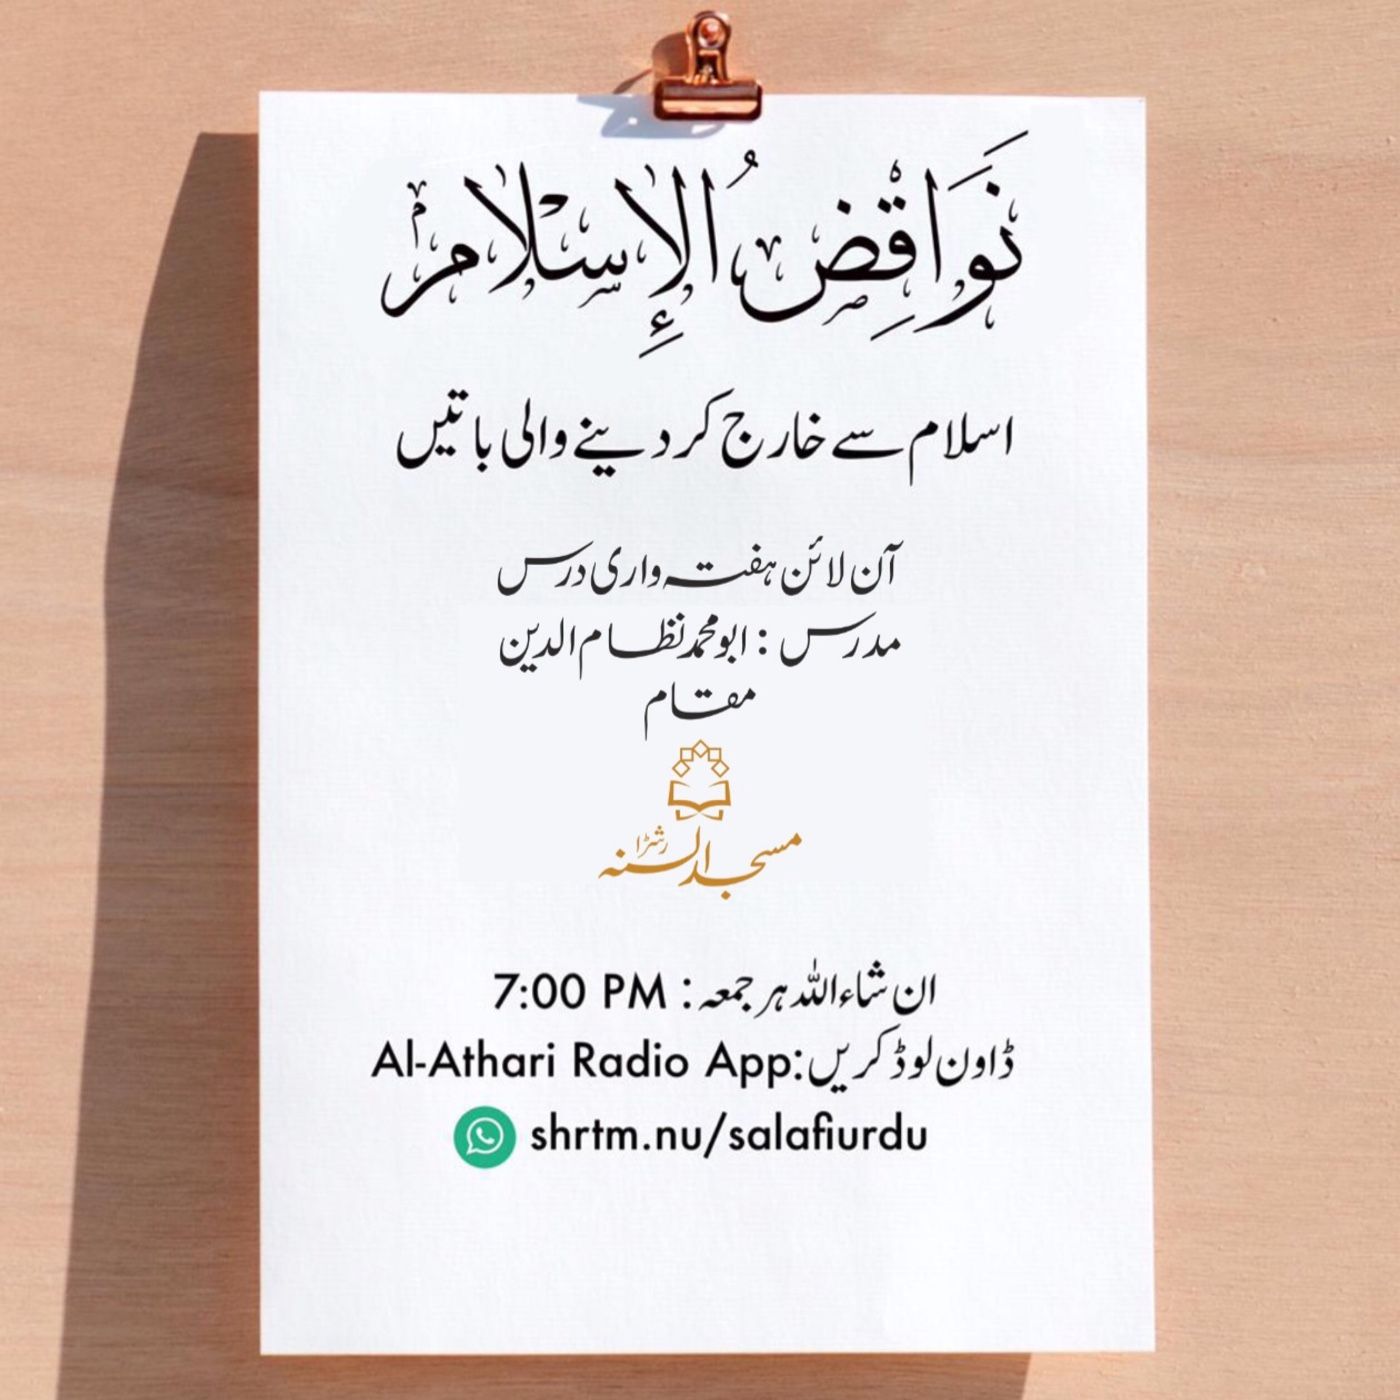 نَوَاقِضُ الإِسْلَام
اسلام سے خارج کر دینے والی باتیں
آن لائن ہفتہ واری درس
مدرس : ابو محمد نظام الدین
مقام
مسجد السنہ رشڑا
ان شاء اللہ ہر جمعہ : 7:00 PM
ڈاون لوڈ کریں:Al-Athari Radio App
shrtm.nu/salafiurdu